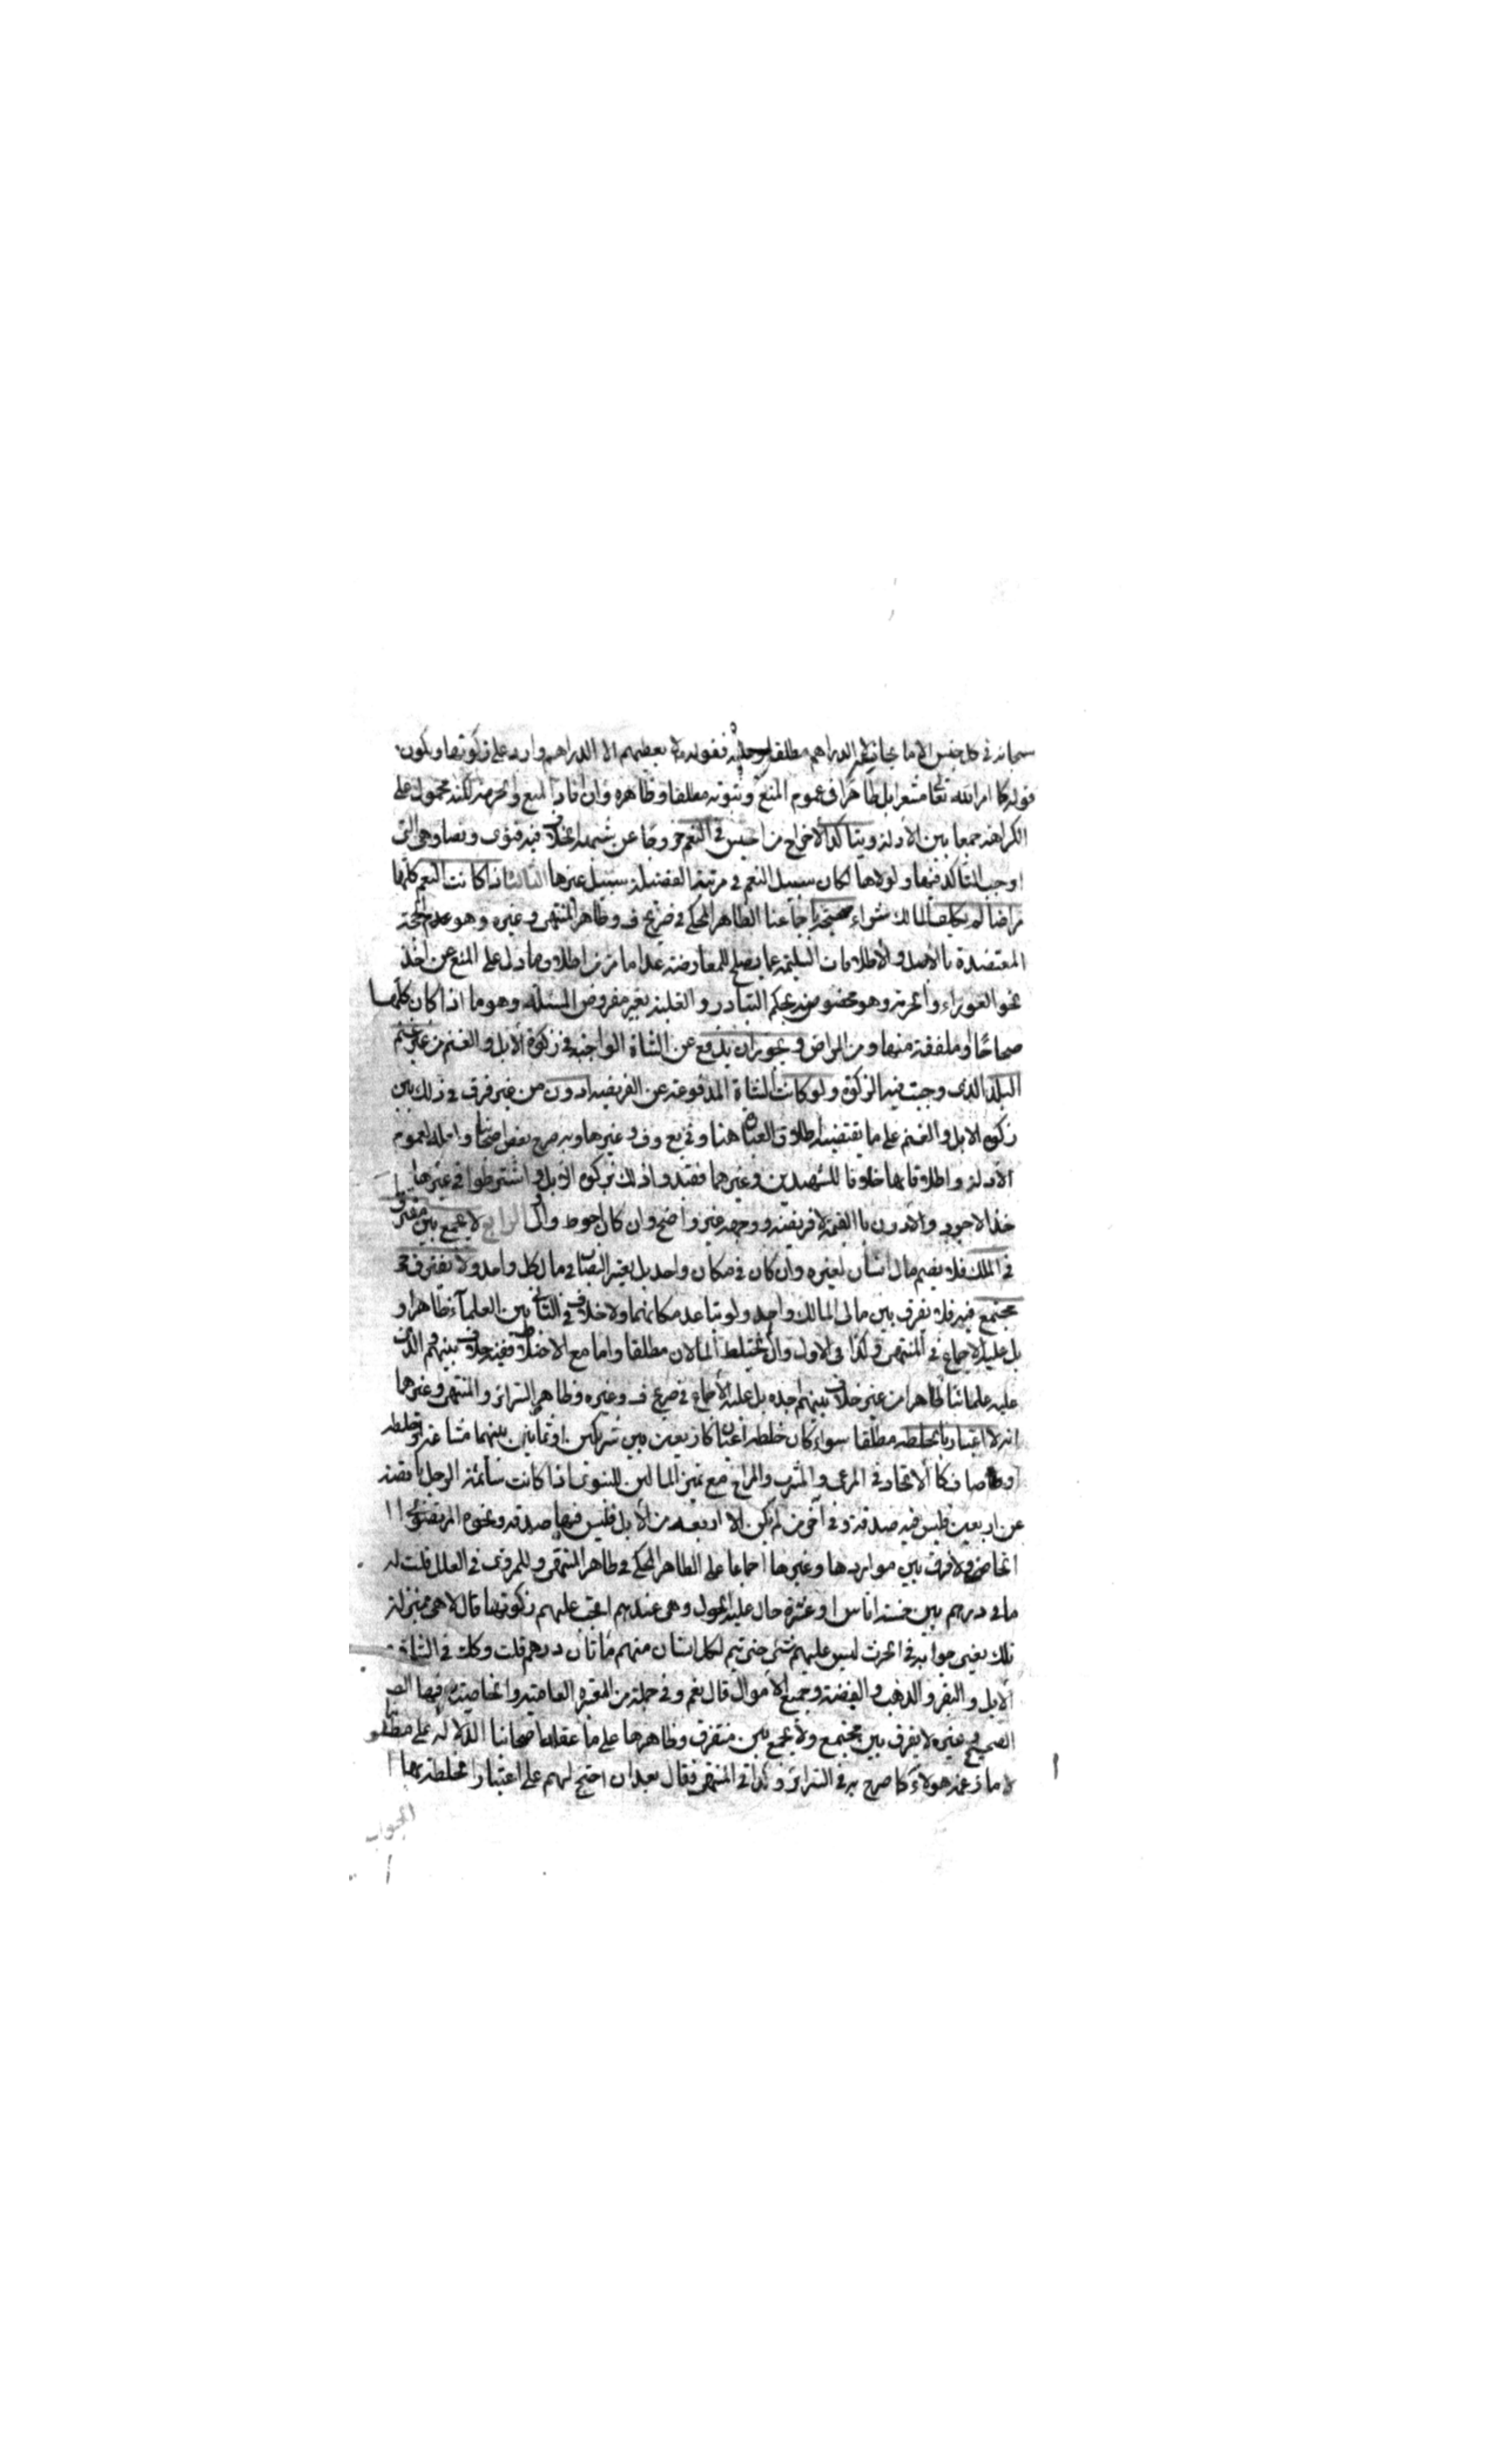 سبحانه في كل جنس الا ما يجانسه الدراهم مطلقا فقوله لا يعطيهم الا الدراهم وارد على زكوتها ويكون
قوله كما امر الله تعالى مشعرا بل ظاهرا في عموم المنع وثبوته مطلقا وظاهره وان افاد المنع والحرمة لكنه محمول على
الكراهة جمعا بين الادلة ويتاكد الاخراج من الجنس في النعم خروجا عن شبهة الخلاف فيه فتوى ونصا وهي التي
اوجب التاكد فيها ولولاها لكان سبيل النعم في مرتبة الفضيلة سبيل غيرها الثالث اذا كانت النعم كلها
مراضا لم يكلف المالك شراء صحيحة اجماعنا الظاهر المحكي في صريح ف وظاهر المنتهى وغيره وهو الحجة
المعتضدة بالاصل والاطلاقات السليمة عما يصلح للمعارضة عدا ما مر من اطلاق ما دل على المنع عن اخذ
نحو العوراء والهرمة وهو مخصوص بحكم التبادر والغلبة بغير مفروض المسئلة وهو ما اذا كان كلها
صحاحا او ملفقة منها ومن المراض ويجوز ان يدفع عن الشاة الواجبة في زكوة الابل والغنم من غير غنم
البلد الذي وجبت فيه الزكوة ولو كانت الشاة المدفوعة عن الفريضة ادون من غير فرق في ذلك بين
زكوة الابل والغنم على ما يقتضيه اطلاق العبارة هنا وفي يع وف وغيرها وبه صرح بعض اصحابنا ولعله لعموم
الادلة واطلاقاتها خلافا للشهيدين وغيرهما فقيدوا ذلك بزكوة الابل واشترطوا في غيرها
اخذ الاجود والادون بالقيمة لا فريضة ووجهه غير واضح وان كان احوط واولى الرابع لا يجمع بين متفرق
في الملك فلا يضم مال انسان لغيره وان كان في مكان واحد بل يعتبر النصاب في مال كل واحد ولا يفرق
مجتمع فيه فلا يفرق بين مالي المالك واحد ولو تباعد مكانهما ولا خلاف في الثاني بين العلماء ظاهرا و
بل عليه الاجماع في المنتهى وكذا في الاول وان لم يختلط المالان مطلقا واما مع الاختلاط ففيه خلاف بينهم والذي
عليه علمائنا ظاهرا من غير خلاف بينهم اجده بل عليه الاجماع في صريح ف وغيره وظاهر السرائر والمنتهى وغيرهما
انه لا اعتبار بالخلطة مطلقا سواء كان خلطة اعيان كاربعين بين شريكين او ثمانين بينهما مشاعة او خلطة
اوصاف كالاتحاد في المرعى والمشرب والمراح مع تميز المالين للنبوي اذا كانت سائمة الرجل ناقصة
عن اربعين فليس فيه صدقة وفي آخر من لم يكن الا اربعة من الابل فليس فيها صدقة ونحوه المرتضوي
الخاصي ولا فرق بين مواردها وغيرها اجماعا على الظاهر المحكي في ظاهر المنتهى وللمروي في العلل قلت له
مائتي درهم بين خمسة اناس او عشرة حال عليه الحول وهي عندهم ايجب عليهم زكوتها قال لا هي بمنزلة
تلك يعني جوابه في الحرث ليس عليهم شيء حتى يتم لكل انسان منهم مائتان درهم قلت وكذلك في الشاة و
الابل والبقر والذهب والفضة وجميع الاموال قال نعم وفي جملة من المعتبرة العامية والخاصية وفيها
الصحيح وغيره لا يفرق بين مجتمع ولا يجمع بين متفرق وظاهرها على ما عقله اصحابنا الدلالة على مطلوبنا
لا ما زعمه هولاء كما صرح به في السرائر وكذا في المنتهى فقال بعد ان احتج لهم على اعتبار الخلطة بها
الجواب